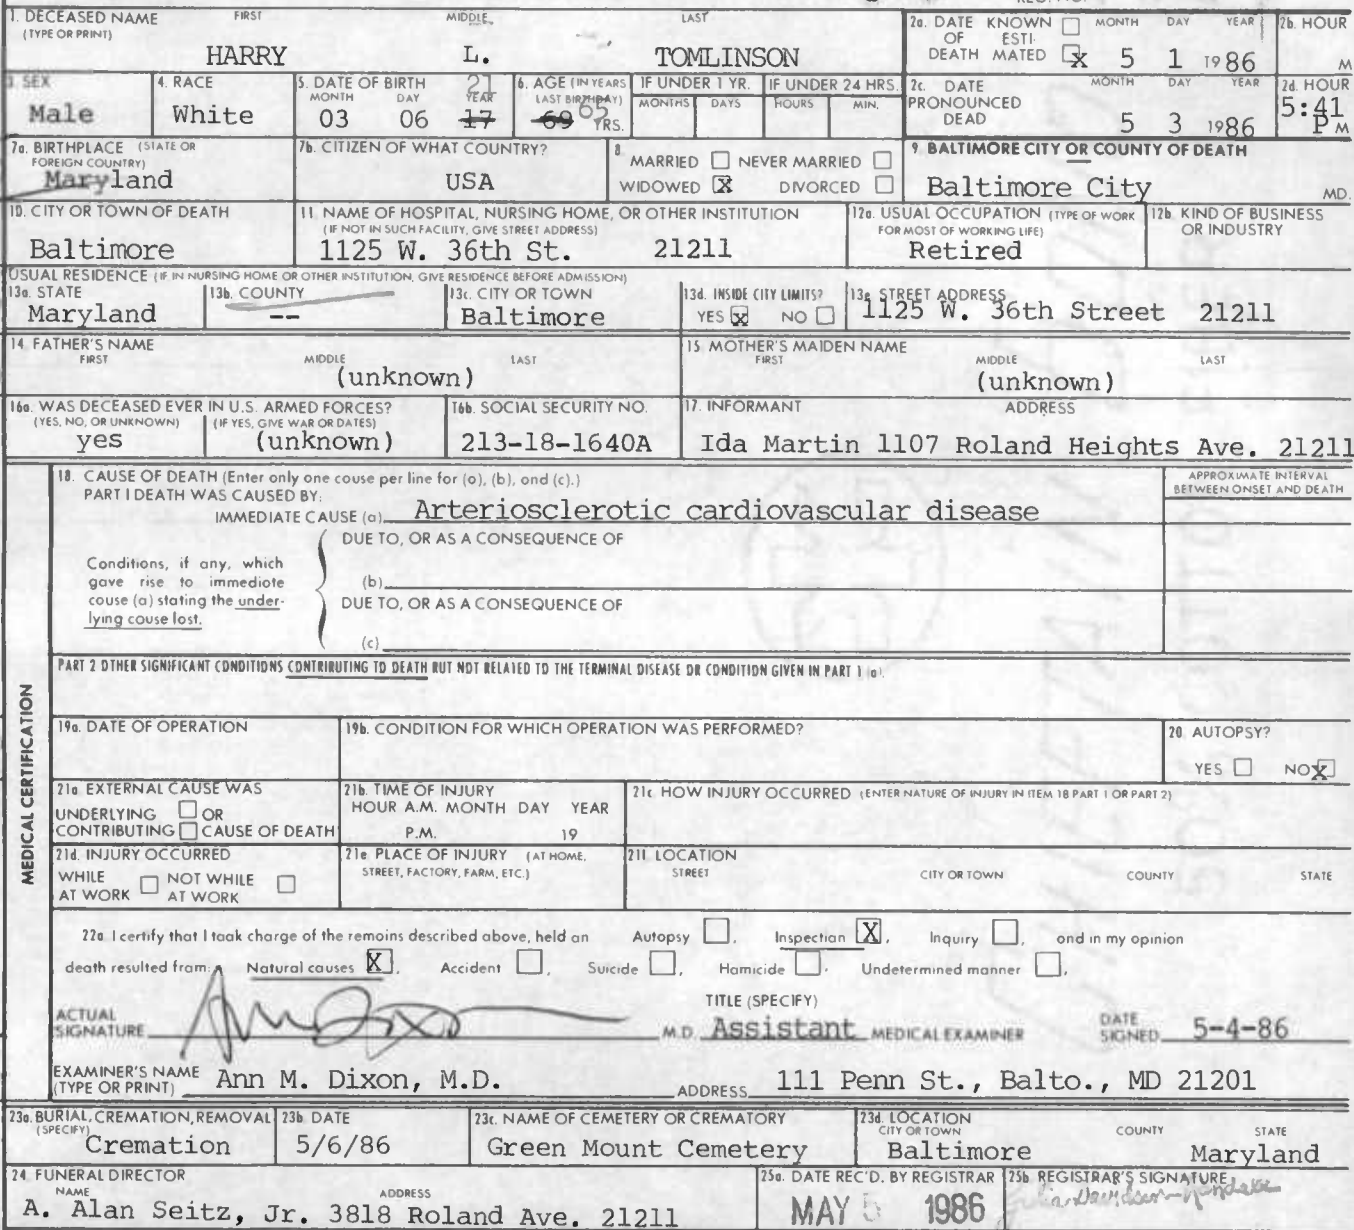 1. DECEASED NAME FIRST MIDDLE LAST
(TYPE OR PRINT)
HARRY L. TOMLINSON
2a. DATE KNOWN ☐ MONTH DAY YEAR
OF ESTI-
DEATH MATED ☒ 5 1 1986
2b. HOUR
M
3. SEX
Male
4. RACE
White
5. DATE OF BIRTH
MONTH DAY YEAR
21
03 06 17
6. AGE (IN YEARS
LAST BIRTHDAY)
69 65 YRS.
IF UNDER 1 YR.
MONTHS DAYS
IF UNDER 24 HRS.
HOURS MIN.
2c. DATE MONTH DAY YEAR
PRONOUNCED
DEAD 5 3 1986
2d. HOUR
5:41
P M
7a. BIRTHPLACE (STATE OR
FOREIGN COUNTRY)
Maryland
7b. CITIZEN OF WHAT COUNTRY?
USA
8
MARRIED ☐ NEVER MARRIED ☐
WIDOWED ☒ DIVORCED ☐
9 BALTIMORE CITY OR COUNTY OF DEATH
Baltimore City MD.
10. CITY OR TOWN OF DEATH
Baltimore
11. NAME OF HOSPITAL, NURSING HOME, OR OTHER INSTITUTION
(IF NOT IN SUCH FACILITY, GIVE STREET ADDRESS)
1125 W. 36th St. 21211
12a. USUAL OCCUPATION (TYPE OF WORK
FOR MOST OF WORKING LIFE)
Retired
12b. KIND OF BUSINESS
OR INDUSTRY
USUAL RESIDENCE (IF IN NURSING HOME OR OTHER INSTITUTION, GIVE RESIDENCE BEFORE ADMISSION)
13a. STATE
Maryland
13b. COUNTY
--
13c. CITY OR TOWN
Baltimore
13d. INSIDE CITY LIMITS?
YES ☒ NO ☐
13e STREET ADDRESS
1125 W. 36th Street 21211
14. FATHER'S NAME
FIRST MIDDLE LAST
(unknown)
15 MOTHER'S MAIDEN NAME
FIRST MIDDLE LAST
(unknown)
16a. WAS DECEASED EVER IN U.S. ARMED FORCES?
(YES, NO, OR UNKNOWN) (IF YES, GIVE WAR OR DATES)
yes (unknown)
16b. SOCIAL SECURITY NO.
213-18-1640A
17. INFORMANT ADDRESS
Ida Martin 1107 Roland Heights Ave. 21211
MEDICAL CERTIFICATION
18. CAUSE OF DEATH (Enter only one couse per line for (o), (b), ond (c).)
PART I DEATH WAS CAUSED BY:
IMMEDIATE CAUSE (a) Arteriosclerotic cardiovascular disease
APPROXIMATE INTERVAL
BETWEEN ONSET AND DEATH
DUE TO, OR AS A CONSEQUENCE OF
Conditions, if any, which
gave rise to immediote
couse (a) stating the under-
lying couse lost.
(b)
DUE TO, OR AS A CONSEQUENCE OF
(c)
PART 2 OTHER SIGNIFICANT CONDITIONS CONTRIBUTING TO DEATH BUT NOT RELATED TO THE TERMINAL DISEASE OR CONDITION GIVEN IN PART 1 (a).
19a. DATE OF OPERATION
19b. CONDITION FOR WHICH OPERATION WAS PERFORMED?
20. AUTOPSY?
YES ☐ NO ☒
21a EXTERNAL CAUSE WAS
UNDERLYING ☐ OR
CONTRIBUTING ☐ CAUSE OF DEATH
21b. TIME OF INJURY
HOUR A.M. MONTH DAY YEAR
P.M. 19
21c. HOW INJURY OCCURRED (ENTER NATURE OF INJURY IN ITEM 18 PART 1 OR PART 2)
21d. INJURY OCCURRED
WHILE ☐ NOT WHILE ☐
AT WORK AT WORK
21e PLACE OF INJURY (AT HOME,
STREET, FACTORY, FARM, ETC.)
21f. LOCATION
STREET CITY OR TOWN COUNTY STATE
22a I certify that I took charge of the remoins described above, held on Autopsy ☐, Inspection ☒, Inquiry ☐, ond in my opinion
death resulted from: Natural causes ☒, Accident ☐, Suicide ☐, Homicide ☐, Undetermined manner ☐,
ACTUAL
SIGNATURE Ann Dixon M.D.
TITLE (SPECIFY)
Assistant MEDICAL EXAMINER
DATE
SIGNED 5-4-86
EXAMINER'S NAME
(TYPE OR PRINT) Ann M. Dixon, M.D. ADDRESS 111 Penn St., Balto., MD 21201
23a. BURIAL, CREMATION, REMOVAL
(SPECIFY)
Cremation
23b. DATE
5/6/86
23c. NAME OF CEMETERY OR CREMATORY
Green Mount Cemetery
23d. LOCATION
CITY OR TOWN COUNTY STATE
Baltimore Maryland
24. FUNERAL DIRECTOR
NAME ADDRESS
A. Alan Seitz, Jr. 3818 Roland Ave. 21211
25a. DATE REC'D. BY REGISTRAR
MAY 5 1986
25b. REGISTRAR'S SIGNATURE